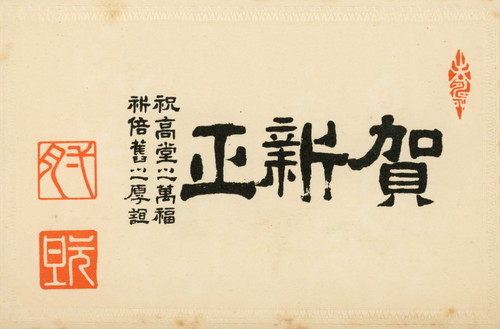 賀新正
祝高堂之萬福
祈倍舊之厚誼
元旦